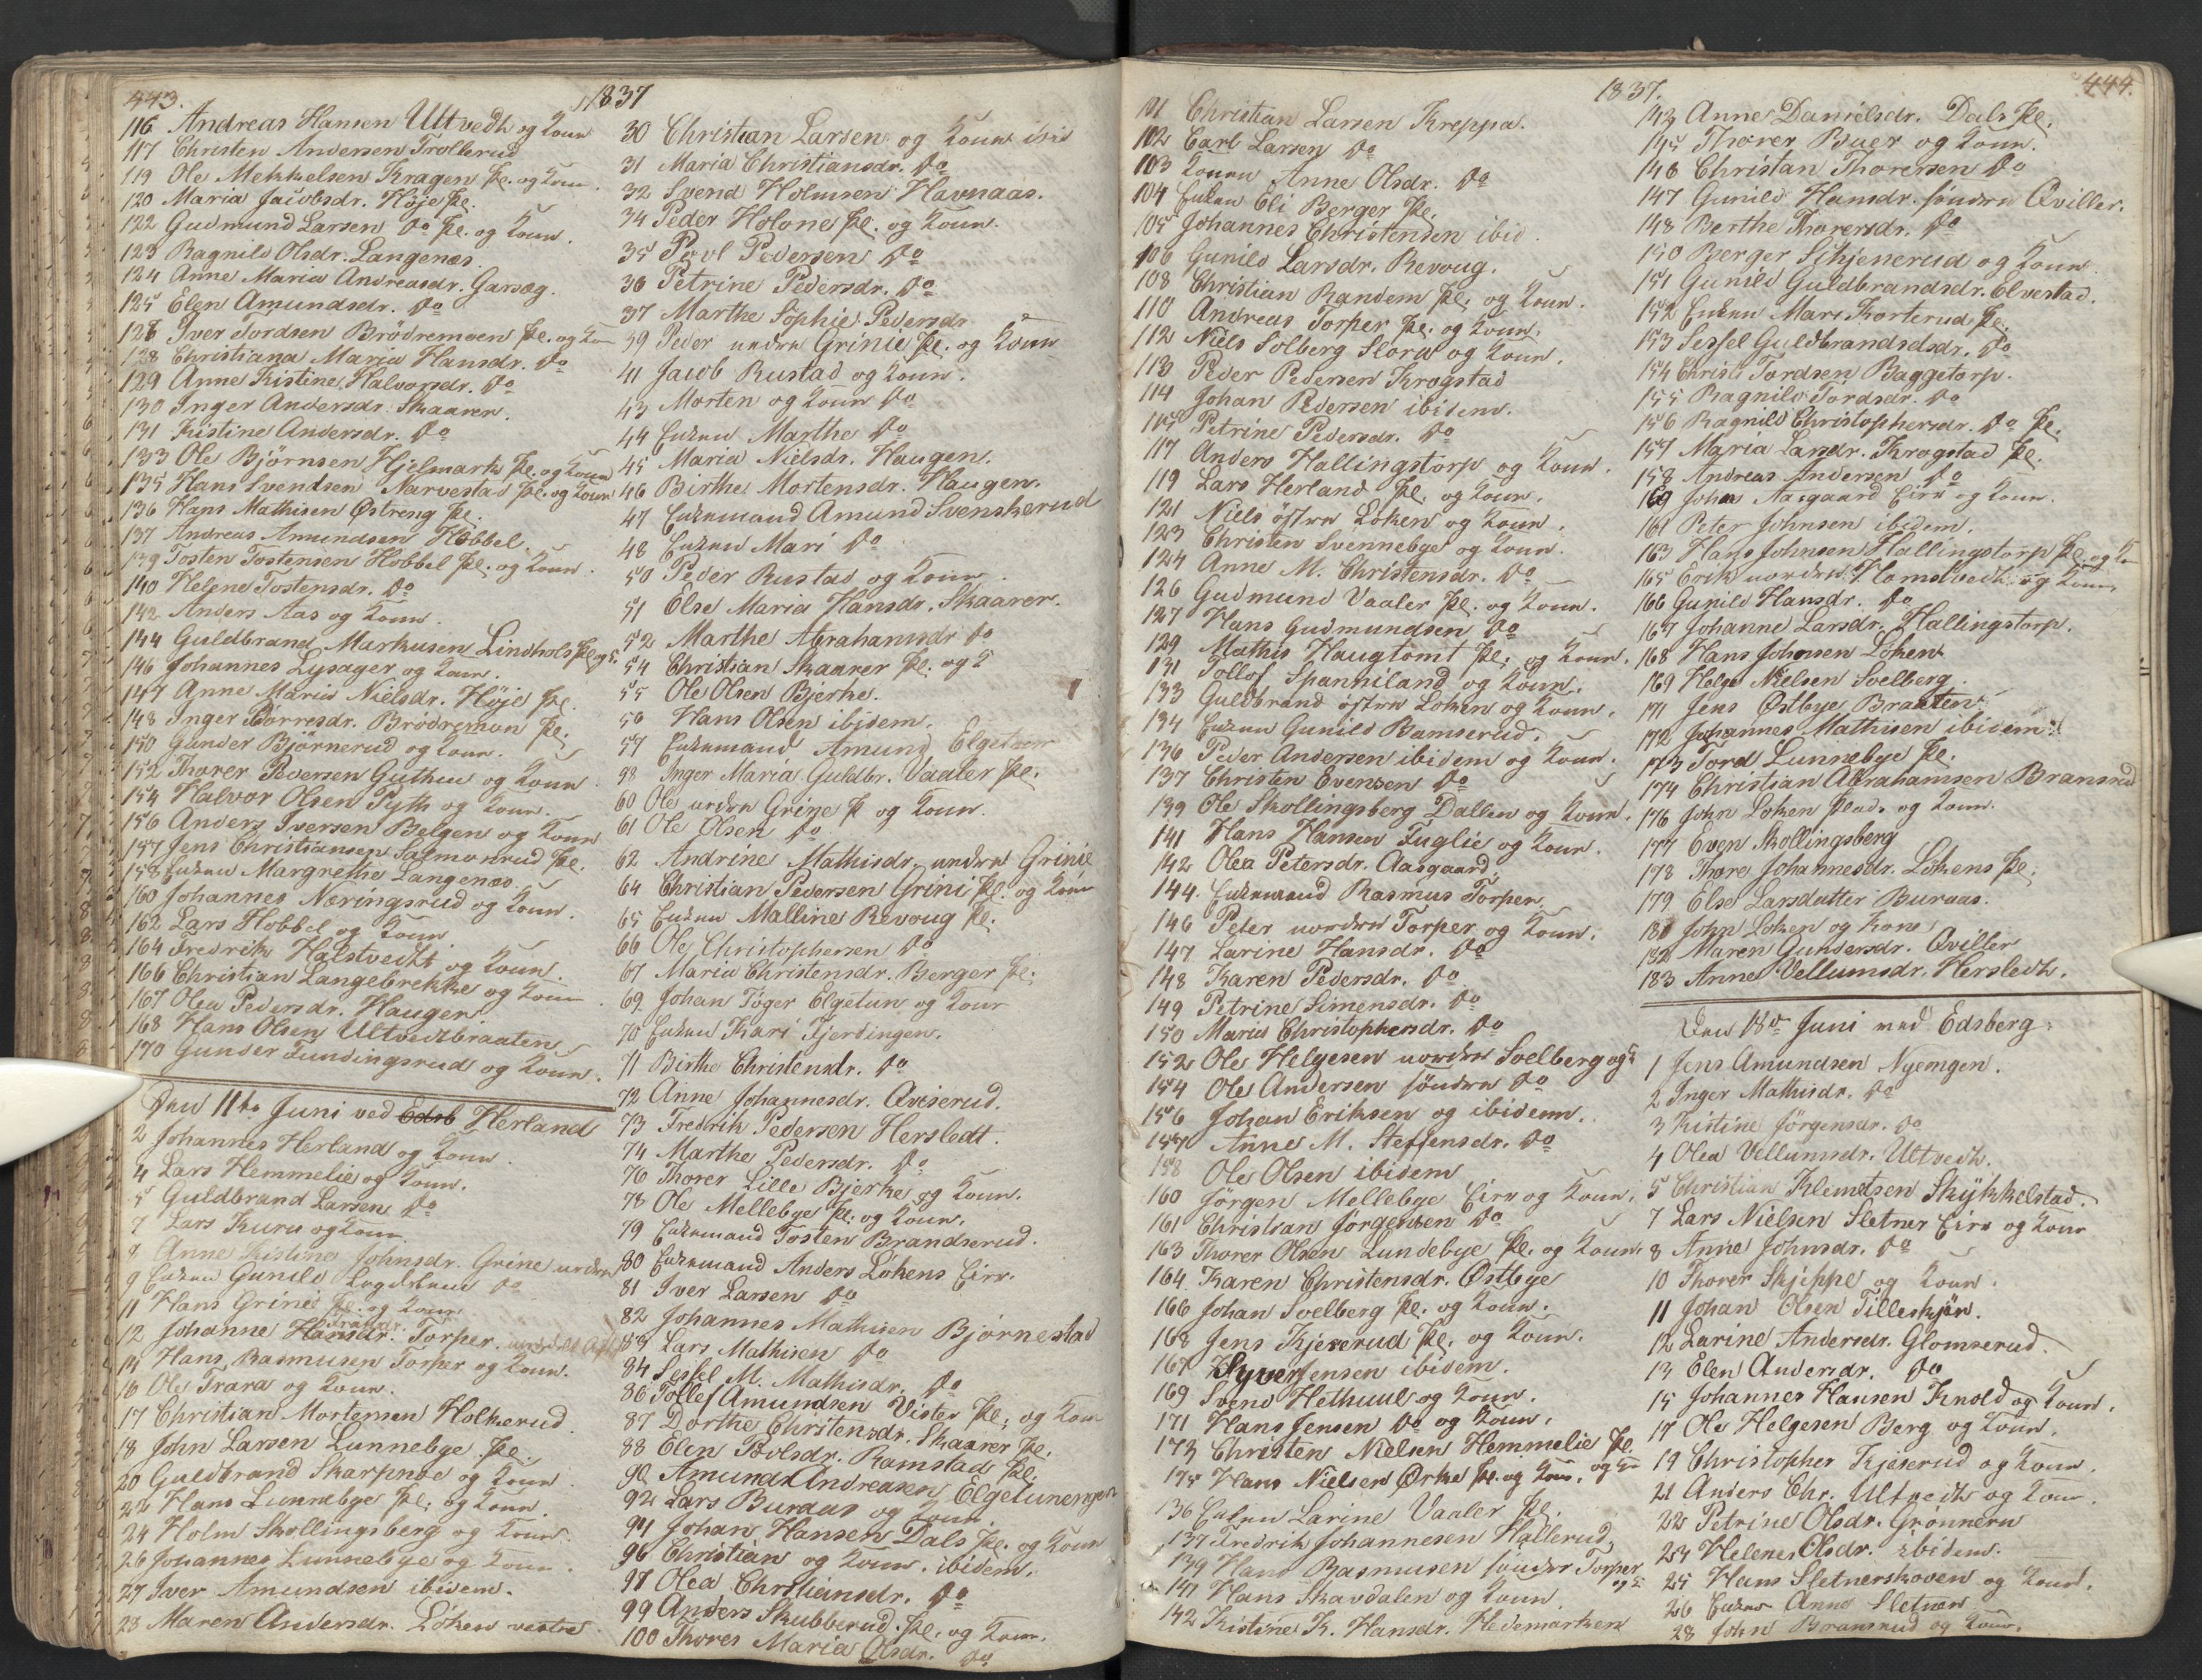 443.
1837
116 Andreas Hansen Ultvedt og Kone
117 Christen Andersen Trollerud
119 Ole Mekkelsen Kragen Pl. og Kone.
120 Maria Jacobsdr. Høje Pl.
122 Gudmund Larsen Do Pl. og Kone.
123 Ragnild Olsdr. Langenæs.
124 Anne Maria Andreasdr. Garsæg.
125 Elen Amundsdr. Do
126 Iver Tordsen Brödremoen Pl. og Kone
128 Christiana Maria Hansdr. Do
129 Anne Kistine Halvorsdr. Do
130 Inger Andersdr. Skaarer.
131 Kistine Andersdr. Do
133 Ole Björnsen Hjelmark Pl. og Kone
135 Hans Svendsen Narvestad Pl. og Kone
136 Hans Mathisen Østreng Pl.
137 Andreas Amundsen Hobbel
139 Tosten Tostensen Hobbel Pl. og Kone.
140 Helene Tostensdr. Do
142 Anders Aas og Kone.
144 Guldbrand Markusen Lindhols Pl. og K.
146 Johannes Lysager og Kone.
147 Anne Maria Nielsdr. Höje Pl.
148 Inger Börresdr. Brödremon Pl.
150 Gunder Björnerud og Kone.
152 Thorer Pedersen Guthu og Kone
154 Halvor Olsen Pyth og Kone.
156 Anders Iversen Belgen og Kone
157 Jens Christiansen Salmonrud Pl.
158 Enken Margrethe Langenæs.
160 Johannes Næringsrud og Kone.
162 Lars Hobbel og Kone
164 Fredrik Halstvedt og Kone.
166 Christian Langebrekke og Kone.
167 Olea Pedersdr. Haugen
168 Hans Olsen Ultvedtbraaten
170 Gunder Fundingsrud og Kone.
Den 11te Juni ved Edsb Herland
2 Johannes Herland og Kone.
4 Lars Hemmelie og Kone.
5 Guldbrand Larsen Do
7 Lars Kuru og Kone.
8 Anne Kistine Johnsdr. Grine nedre
9 Enken Gunild Do
11 Hans Grinie Pl. og Kone
12 Johanne Hansdr. Torper.
14 Hans Rasmusen Torper og Kone.
16 Ole Trara og Kone.
17 Christian Mortensen Holkerud
18 John Larsen Lunnebye Pl.
20 Guldbrand Skarpnoe og Kone
22 Hans Lunnebye Pl. og Kone.
24 Holm Skollingsberg og Kone.
26 Johannes Lunnebye og Kone.
27 Iver Amundsen ibidem.
28 Maren Andersdr. Löken vestre.
30 Christian Larsen og Kone ibid
31 Maria Christiansdr. Do
32 Svend Holmsen Havnaas.
34 Peder Holone Pl. og Kone.
35 Povl Pedersen Do
36 Petrine Pedersdr. Do
37 Marthe Sophie Pedersdr Do
39 Peder nedre Grinie Pl. og Kone
41 Jacob Rustad og Kone.
43 Morten og Kone Do
44 Enken Marthe Do
45 Maria Nielsdr. Haugen.
46 Birthe Mortensdr. Haugen.
47 Enkemand Amund Svenskerud
48 Enken Mari Do
50 Peder Rustad og Kone.
51 Else Maria Hansdr. Skaarer.
52 Marthe Abrahamsdr Do
54 Christian Skaarer Pl. og K
55 Ole Olsen Bjerke.
56 Hans Olsen ibidem.
57 Enkemand Amund Elgetun
58 Inger Maria Guldbr. Vaaler Pl.
60 Ole nedre Grine Pl og Kone.
61 Ole Olsen Do
62 Andrine Mathisdr. nedre Grinie
64 Christian Pedersen Grini Pl. og Kone
65 Enken Malline Revoug Pl.
66 Ole Christophersen Do
67 Maria Christensdr. Berger Pl.
69 Johan Töger Elgetun og Kone
70 Enken Kari Fjerdingen.
71 Birthe Christensdr. Do
72 Anne Johannesdr. Qviserud.
73 Fredrik Pedersen Hersledt.
74 Marthe Pedersdr. Do
76 Thorer Lille Bjerke og Kone.
78 Ole Mellebye Pl. og Kone.
79 Enkemand Tosten Brandserud.
80 Enkemand Anders Lökens Eier.
81 Iver Larsen Do
82 Johannes Mathisen Björnestad
83 Lars Mathisen Do
84 Sessel M. Mathisdr. Do
86 Tollef Amundsen Vister Pl. og Kone
87 Dorthe Christensdr. Skaarer Pl.
88 Elen Povlsdr. Ramstad Pl.
90 Amund Andreasen Elgetunengen
92 Lars Buraas og Kone
94 Johan Hansen Dals Pl. og Kone
96 Christian og Kone. ibidem.
97 Olea Christiansdr. Do
99 Anders Skubberud. Pl. og Kone.
100 Thores Maria Olsdr. Do
1837.
444.
101 Christian Larsen Kreppa.
102 Carl Larsen Do
103 Konen Anne Olsdr. Do
104 Enken Eli Berger Pl.
105 Johannes Christensen ibid.
106 Gunild Larsdr. Revoug.
108 Christian Randem Pl. og Kone.
110 Andreas Torper Pl. og Kone.
112 Niels Solberg Slora og Kone.
113 Peder Pedersen Krogstad
114 Johan Pedersen ibidem.
115 Petrine Pedersdr. Do
117 Anders Hallingstorp og Kone.
119 Lars Herland Pl. og Kone.
121 Niels östre Löken og Kone.
123 Christen Svennebye og Kone.
124 Anne M. Christensdr. Do
126 Gudmund Vaaler Pl. og Kone.
127 Hans Gudmundsen Do
129 Mathis Haugtomt Pl. og Kone.
131 Tollof Spanniland og Kone.
133 Guldbrand östre Löken og Kone.
134 Enken Gunild Ramserud.
136 Peder Andersen ibidem og Kone.
137 Christen Evensen Do
139 Ole Skollingsberg Dallen og Kone.
141 Hans Hansen Fuglie og Kone.
142 Olea Petersdr. Aasgaard.
144. Enkemand Rasmus Torper
146 Peter nordre Torper og Kone.
147 Larine Hansdr. Do
148 Karen Pedersdr. Do
149 Petrine Simensdr. Do
150 Maria Christophersdr. Do
152 Ole Helgesen nordre Solberg og K
154 Ole Andersen söndre Do
156 Johan Eriksen og ibidem.
157 Anne M. Steffensdr. Do
158 Ole Olsen ibidem
160 Jörgen Mellebye Eier og Kone.
161 Christian Jörgensen Do
163 Thorer Olsen Lundebye Pl. og Kone.
164 Karen Christensdr. Østbye
166 Johan Solberg Pl. og Kone.
168 Jens Kjeserud Pl. og Kone.
167 Syver Jensen ibidem.
169 Svend Hethuul og Kone.
171 Hans Jensen Do og Kone.
173 Christen Nielsen Hemmelie Pl. og K
175 Hans Nielsen Ørke Pl. og Kone.
136 Enken Larine Vaaler Pl.
137 Fredrik Johannesen Hallerud
139 Hans Rasmusen söndre Torper og K
141 Hans Skavdalen og Kone.
142 Kistine K. Hansdr. Hedemarken
143 Anne Danielsdr. Dals Pl.
145 Thorer Buer og Kone.
146 Christian Thorersen Do
147 Gunild Hansdr. söndre Qviller.
148 Berthe Thorersdr. Do
150 Berger Schjenerud og Kone.
151 Gunild Guldbrandsdr. Elvestad.
152 Enken Mari Korterud Pl.
153 Sessel Guldbrandsdsdr. Do
154 Christ: Tordsen Baggetorp.
155 Ragnild Tordsdr. Do
156 Ragnild Christophersdr. Do Pl.
157 Maria Larsdr. Krogstad Pl.
158 Andreas Andersen Do
160 Johns Aasgaard Eier og Kone.
161 Peter Johnsen ibidem.
163 Hans Johnsen Hallingstorp Pl. og Kone
165 Erik nordre Homstvedt og Kone
166 Gunild Hansdr. Do
167 Johanne Larsdr. Hallingstorp.
168 Hans Johnsen Löken
169 Helge Nielsen Solberg.
171 Jens Østbye Braaten
172 Johannes Mathisen ibidem
173 Tord Lunnebye Pl.
174 Christian Abrahamsen Bransrud
176 John Löken Plads og Kone.
177 Even Skollingsberg
178 Thore Johannesdr. Lökens Pl.
179 Else Larsdatter Buraas.
181 John Löken og Kone
182 Maren Gundersdr. Qviller
183 Anne Vellumsdr. Hersledt.
Den 18de Juni ved Edsberg.
1 Jens Amundsen Nyemgen.
2 Inger Mathisdr. Do
3 Kistine Jörgensdr. Do
4 Olea Vellumsdr. Ultvedt.
5 Christian Klemetsen Skÿkkelstad.
7 Lars Nielsen Sletner Eier og Kone
8 Anne Johnsdr. Do
10 Thorer Skjeppe og Kone.
11 Johan Olsen Tilleskjör.
12 Larine Andersdr. Glomserud.
13 Elen Andersdr. Do
15 Johannes Hansen Knold og Kone.
17 Ole Helgesen Berg og Kone.
19 Christopher Kjeserud og Kone.
21 Anders Chr. Ultvedt og Kone.
22 Petrine Olsdr. Grönnern
23 Helene Olsdr. ibidem.
25 Hans Sletnerskoven og Kone.
26 Enken Anne Sletner
28 John Bransrud og Kone.